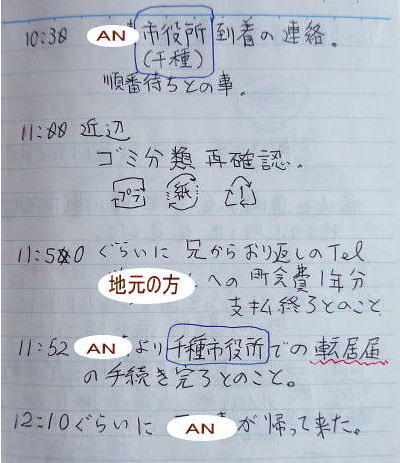 10:30 AN 市役所 到着の連絡。
(千種)
順番待ちとの事。
11:00 近辺
ゴミ分類 再確認。
プラ 紙
11:50 ぐらいに 兄からおり返しのTel
地元の方 への町会費1年分
支払終了とのこと
11:52 AN より 千種市役所での転居届
の手続き完了とのこと。
12:10 ぐらいに AN が帰って来た。